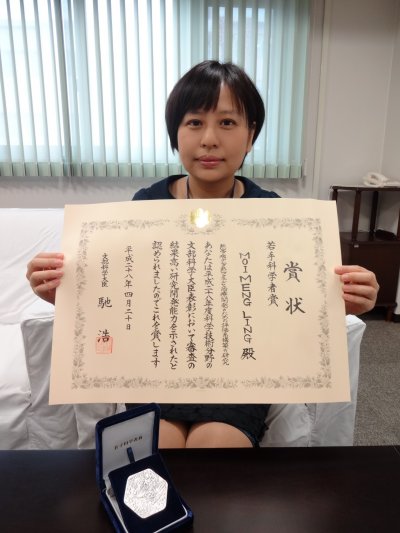 賞状
若手科学者賞
MOI MENG LING 殿
の研究
あなたは平成二十八年度科学技術分野の
文部科学大臣表彰において審査の
結果高い研究開発能力を示されたと
認められましたのでこれを賞します
平成二十八年四月二十日
文部科学大臣 馳 浩
若手科学者賞